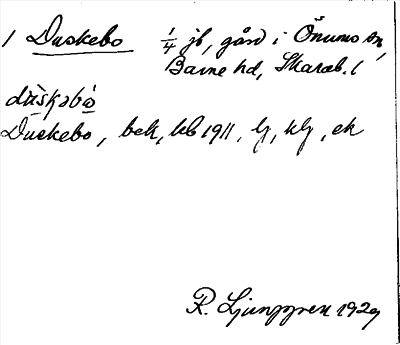 1 Duskebo 1/4 jb, gård i Önums sn,
Barne hd, Skarab. l
Duskebo, bek, kb 1911, lj, klj, ek
R. Ljunggren 1929